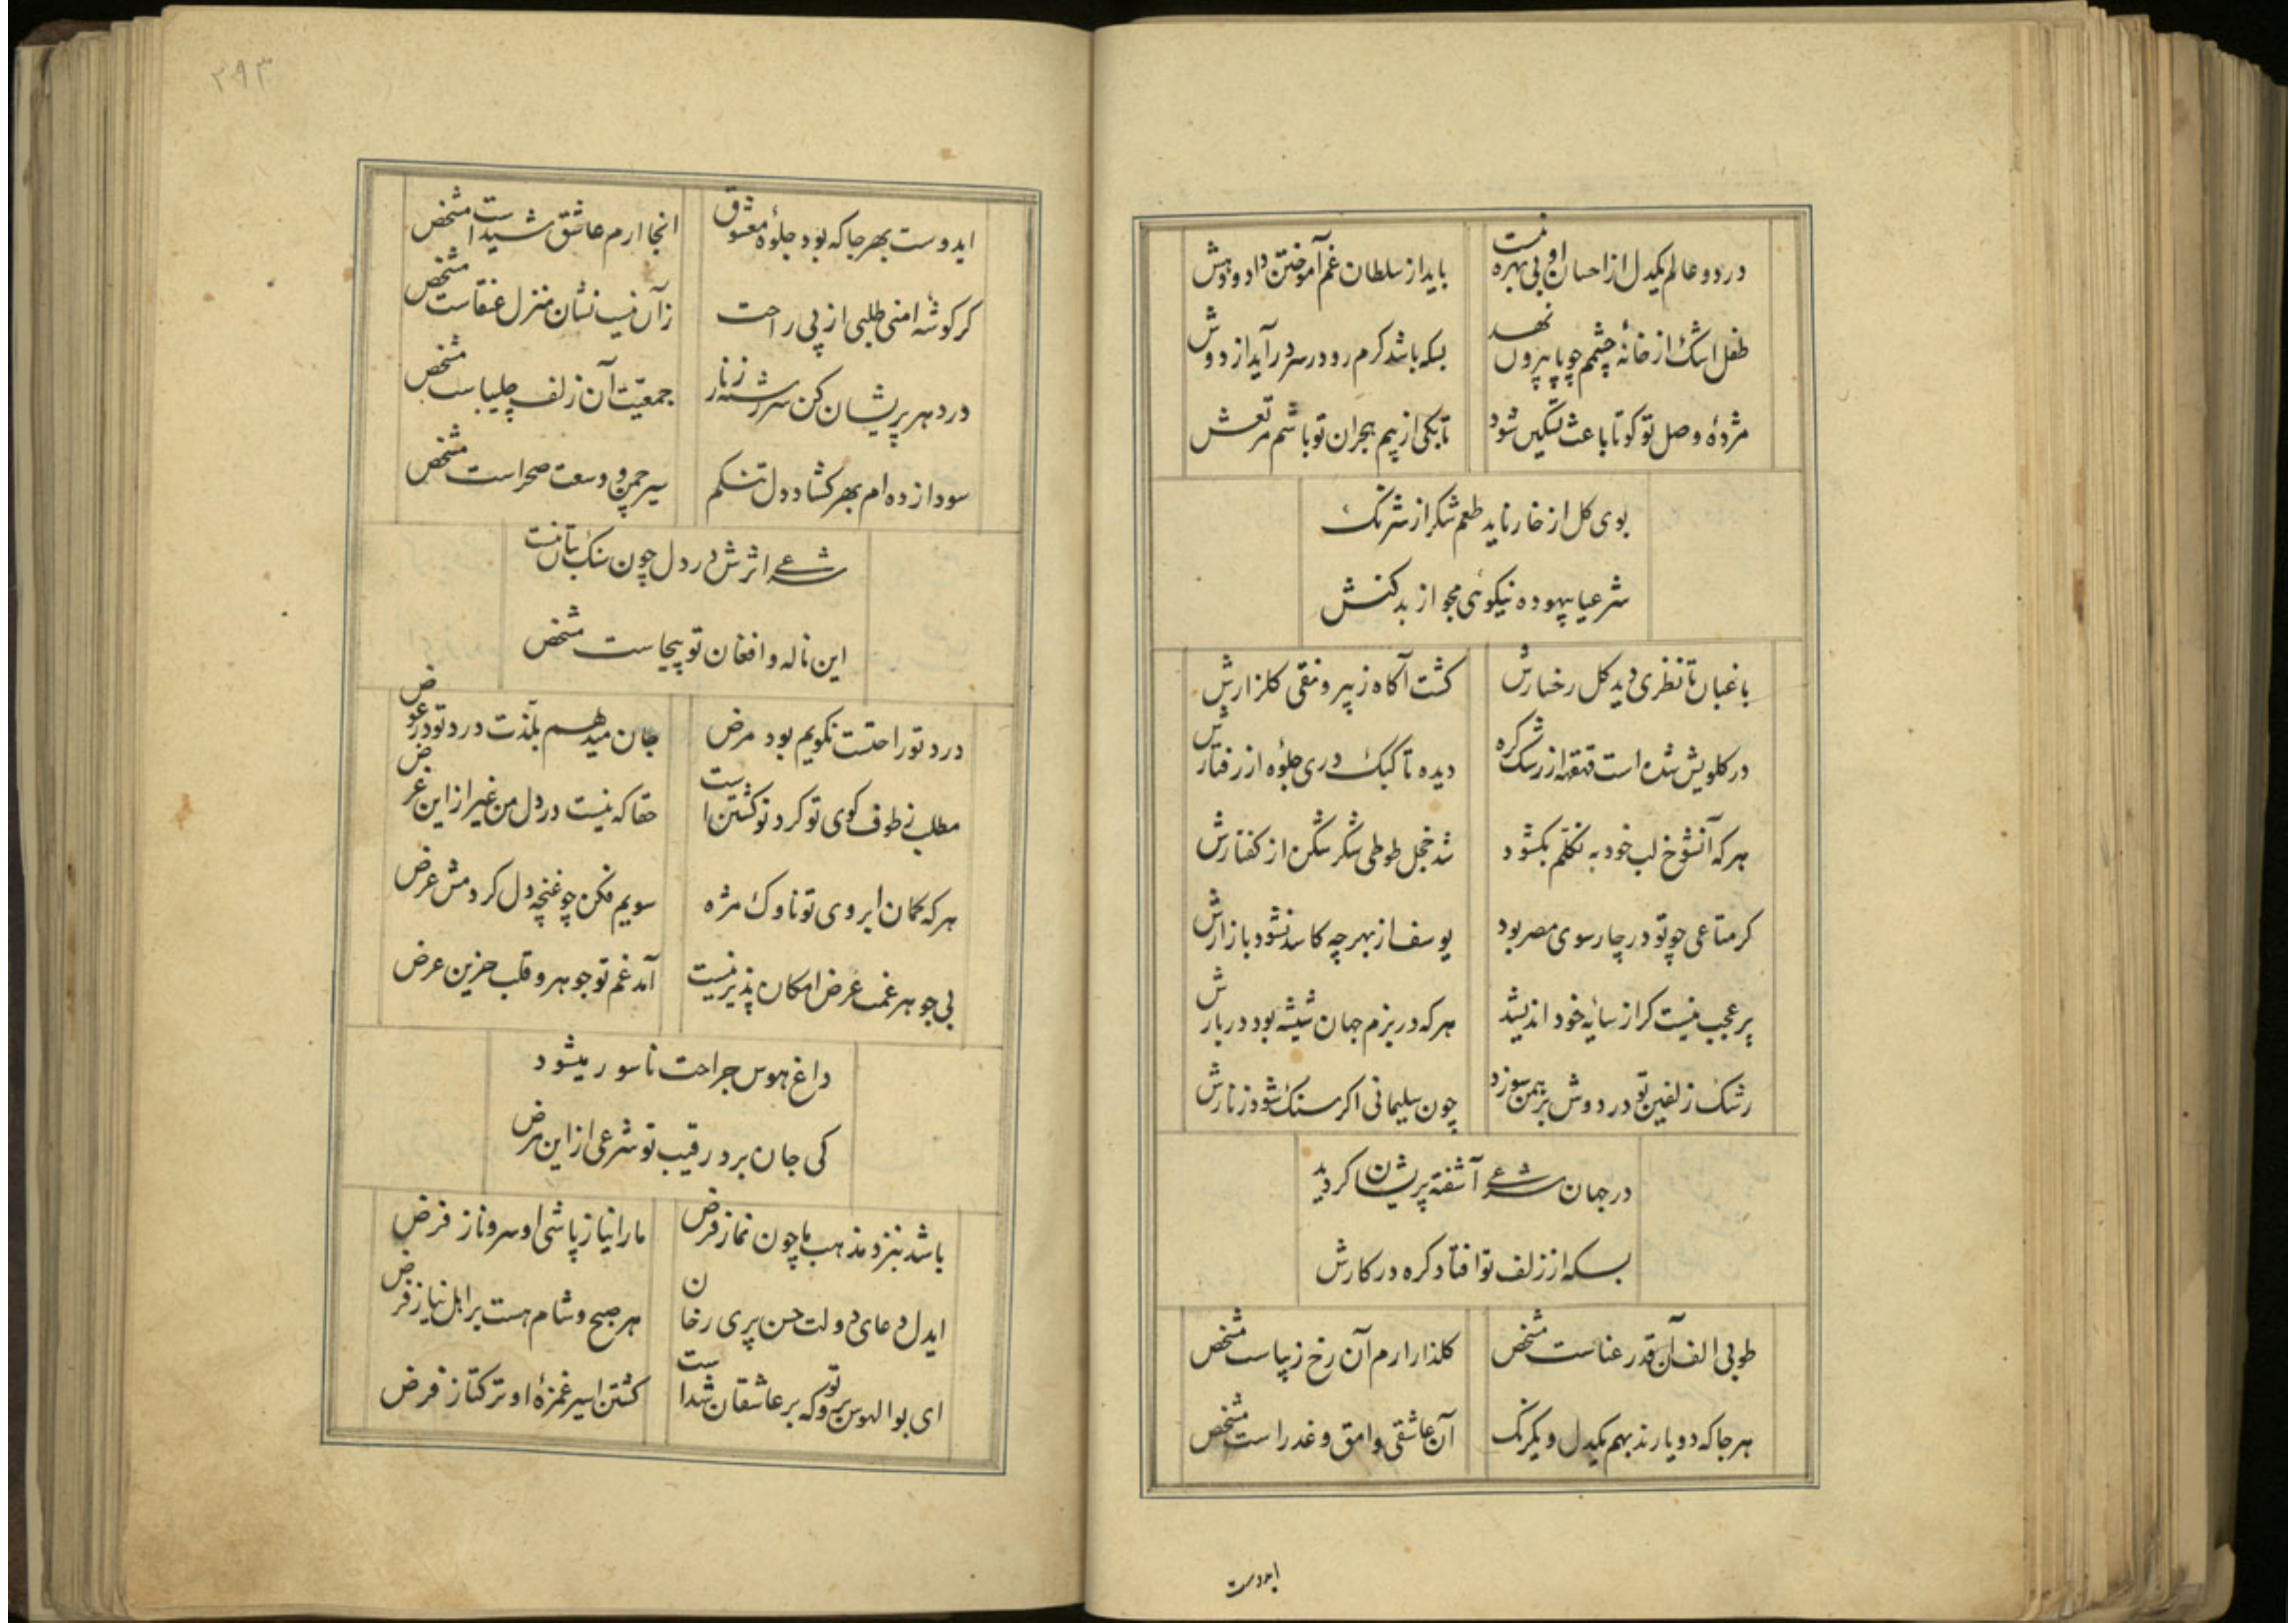 در دو عالم یکدل از احسان او بی بهره نیست
باید از سلطان غم آموختن داد و دهش
طفل اشک از خانهٔ چشمم چو پا بیرون نهد
بسکه باشد کرم رو در سر در آید از دوش
مژدهٔ وصل تو کو تا باعث تسکین شود
تا بکی از بیم هجران تو باشم مرتعش
بوی کل از خار ناید طعم شکر از شرنک
شرعیا بیهوده نیکوئی مجو از بد کنش
باغبان تا نظری دید کل رخسارش
کشت آکاه ز بیرونقی کلزارش
در کلویش شده است قهقهه از رشک کره
دیده تا کبک دری جلوه از رفتارش
هر که آنشوخ لب خود به تکلم بکشود
شد خجل طوطی شکر شکن از کفتارش
کر متاعی چو تو در چارسوی مصر بود
یوسف از بهر چه کاسد نشود بازارش
پر عجب نیست کر از سایهٔ خود اندیشد
هر که در بزم جهان شیشه بود در بارش
رشک زلفین تو در دوش برهمن سوزد
چون سلیمانی اکر سنک شود زنارش
در جهان شرعی آشفته پریشان کردید
بسکه از زلف تو افتاد کره در کارش
طوبی الف آن قد رعناست مشخص
کلذار ارم آن رخ زیباست مشخص
هر جا که دو یارند بهم یکدل و یکرنک
آن عاشقی وامق و عذراست مشخص
ایدوست
٢٩٣
ایدوست بهر جا که بود جلوهٔ معشوق
انجا ارم عاشق شیداست مشخص
کر کوشه امنی طلبی از پی راحت
زآن نیست نشان منزل عنقاست مشخص
در دهر پریشان کن سر رشته زنار
جمعیت آن زلف چلیپاست مشخص
سودا زده ام بهر کشاد دل تنکم
سیر چمن و وسعت صحراست مشخص
شرعی اثرش در دل چون سنک بتان نیست
این ناله و افغان تو بیجاست مشخص
درد تو راحتست نکویم بود مرض
جان میدهم بلذت درد تو در عوض
مطلب ز طوف کوی تو کرد تو کشتن است
حقا که نیست در دل من غیر از این غرض
هر که کمان ابروی تو ناوک مژه
سویم فکن چو غنچه دل کردمش عرض
بی جوهر غمت عرض امکان پذیر نیست
آمد غم تو جوهر و قلب حزین عرض
داغ هوس جراحت ناسور میشود
کی جان برد رقیب تو شرعی از این مرض
باشد بنزد مذهب ما چون نماز فرض
ما را نیاز پاشی او سرو ناز فرض
ایدل دعای دولت حسن پری رخان
هر صبح و شام هست بر اهل نیاز فرض
ای بوالهوس برو که بر عاشقان تو شداست
کشتن اسیر غمزهٔ او ترکتاز فرض